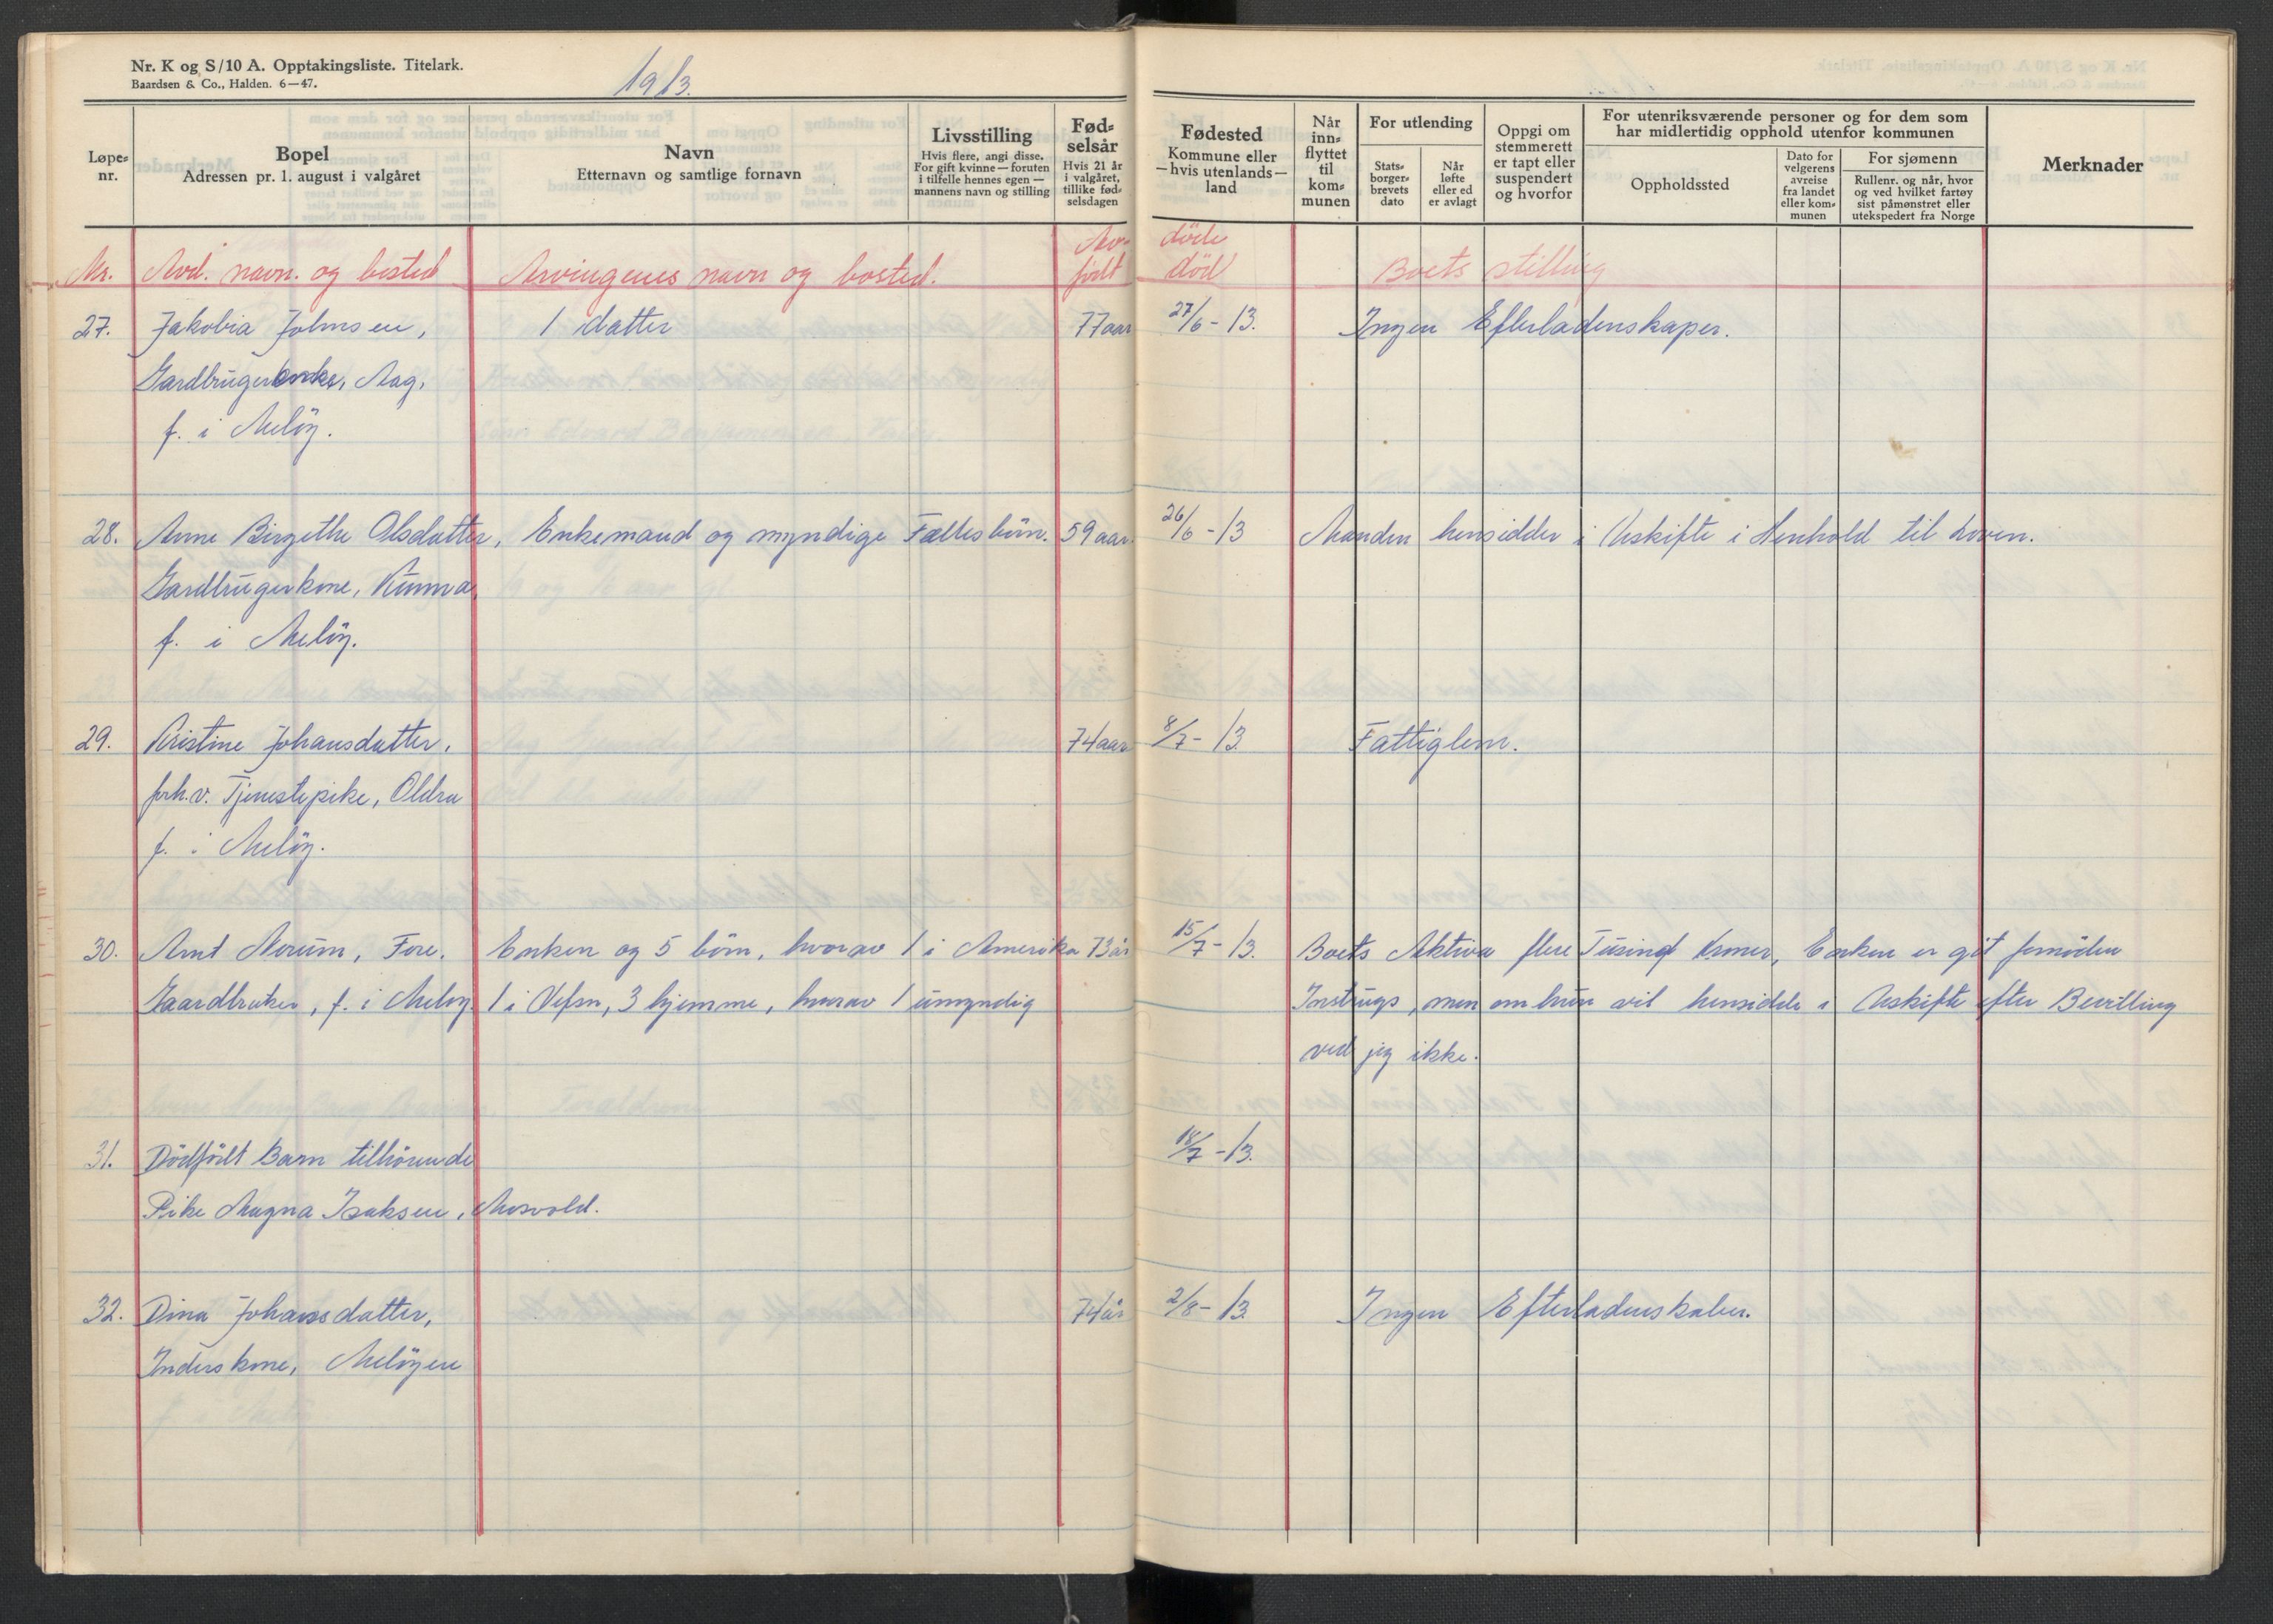 Nr. K og S/10 A. Opptakingsliste. Titelark.
Baardsen & Co., Halden. 6—47.
1913.
Løpe-nr.
Bopel
Adressen pr. 1. august i valgåret
Navn
Etternavn og samtlige fornavn
Livsstilling
Hvis flere, angi disse.
For gift kvinne — foruten
i tilfelle hennes egen —
mannens navn og stilling
Fød-
selsår
Hvis 21 år
i valgåret,
tillike fød-
selsdagen
Fødested
Kommune eller
— hvis utenlands —
land
Når
inn-
flyttet
til
kom-
munen
For utlending
Stats-
borger-
brevets
dato
Når
løfte
eller ed
er avlagt
Oppgi om
stemmerett
er tapt eller
suspendert
og hvorfor
For utenriksværende personer og for dem som
har midlertidig opphold utenfor kommunen
Oppholdssted
Dato for
velgerens
avreise
fra landet
eller kom-
munen
For sjømenn
Rullenr. og når, hvor
og ved hvilket fartøy
sist påmønstret eller
utekspedert fra Norge
Merknader
Av- døde
Nr. Avd. navn. og bosted Arvingenes navn og bosted. født død Boets stilling
27. Jakobia Johnsen, 1 datter 77 aar 27/6-13. Ingen Efterladenskaper.
Gardbrugerenke, Aag,
f. i Meløy.
28. Anne Birgethe Olsdatter, Enkemand og myndige Fællesbörn. 59 aar. 26/6-13 Manden hensidder i Uskifte i Henhold til Loven.
Gardbrugerkone, Kunna,
f. i Meløy.
29. Kristine Johansdatter, 74 aar 8/7-13. Fattiglem.
forh.v. Tjenestepike, Oldra
f. i Meløy.
30. Arnt Norum, Fore. Enken og 5 börn, hvorav 1 i Amerika 73 år 15/7-13. Boets Aktiva flere Tusind Kroner, Enken er git fornöden
Gaardbruker, f. i Meløy. 1 i Vefsn, 3 hjemme, hvorav 1 umyndig Instrugs, men om hun vil hensidde i Uskifte efter Bevilling
ved jeg ikke.
31. Dödfödt Barn tilhörende 18/7-13.
Pike Magna Isaksen, Mosvold.
32. Dina Johansdatter, 74 år 2/8-13 Ingen Efterladenskaber.
Inderskone, Meløyen